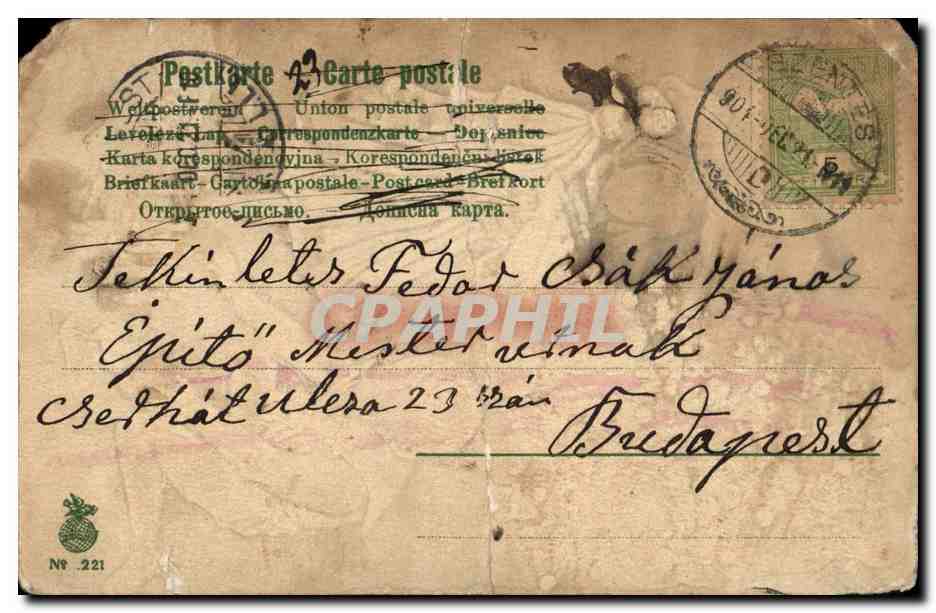 Postkarte 23 Carte postale
Weltpostverein Union postale universelle
Levelező-Lap Correspondenzkarte Dopisnice
Karta korespondencyjna - Korespondenční lístek
Briefkaart - Cartolina postale - Post card - Brefkort
Открытое письмо. - Дописна карта.
SZENTES
5
Tekintetes Fedor Csák János
Epitő Mester urnak
Cserhát utcza 23 szán
Budapest
CPAPHIL
№ 221